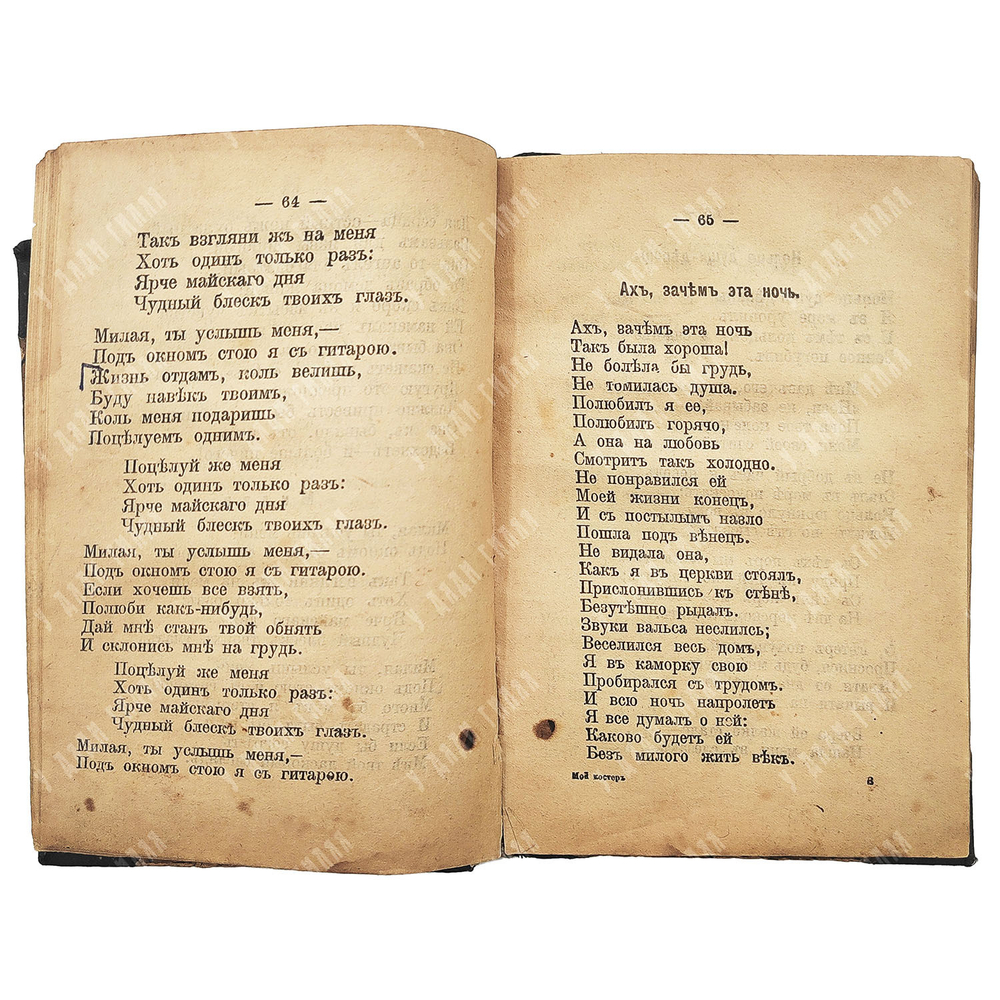 — 64 —
Такъ взгляни жъ на меня
Хоть одинъ только разъ:
Ярче майскаго дня
Чудный блескъ твоихъ глазъ.
Милая, ты услышь меня,—
Подъ окномъ стою я съ гитарою.
Жизнь отдамъ, коль велишь,
Буду навѣкъ твоимъ,
Коль меня подаришь
Поцѣлуемъ однимъ.
Поцѣлуй же меня
Хоть одинъ только разъ:
Ярче майскаго дня
Чудный блескъ твоихъ глазъ.
Милая, ты услышь меня,—
Подъ окномъ стою я съ гитарою.
Если хочешь все взять,
Полюби какъ-нибудь,
Дай мнѣ станъ твой обнять
И склонись мнѣ на грудь.
Поцѣлуй же меня
Хоть одинъ только разъ:
Ярче майскаго дня
Чудный блескъ твоихъ глазъ.
Милая, ты услышь меня,—
Подъ окномъ стою я съ гитарою.
— 65 —
Ахъ, зачѣмъ эта ночь.
Ахъ, зачѣмъ эта ночь
Такъ была хороша!
Не болѣла бы грудь,
Не томилась душа.
Полюбилъ я ее,
Полюбилъ горячо,
А она на любовь
Смотритъ такъ холодно.
Не понравился ей
Моей жизни конецъ,
И съ постылымъ назло
Пошла подъ вѣнецъ.
Не видала она,
Какъ я въ церкви стоялъ,
Прислонившись къ стѣнѣ,
Безутѣшно рыдалъ.
Звуки вальса неслись;
Веселился весь домъ,
Я въ каморку свою
Пробирался съ трудомъ.
И всю ночь напролетъ
Я все думалъ о ней:
Каково будетъ ей
Безъ милого жить вѣкъ.
Мой костеръ
У ДЯДИ ГИЛЯЯ